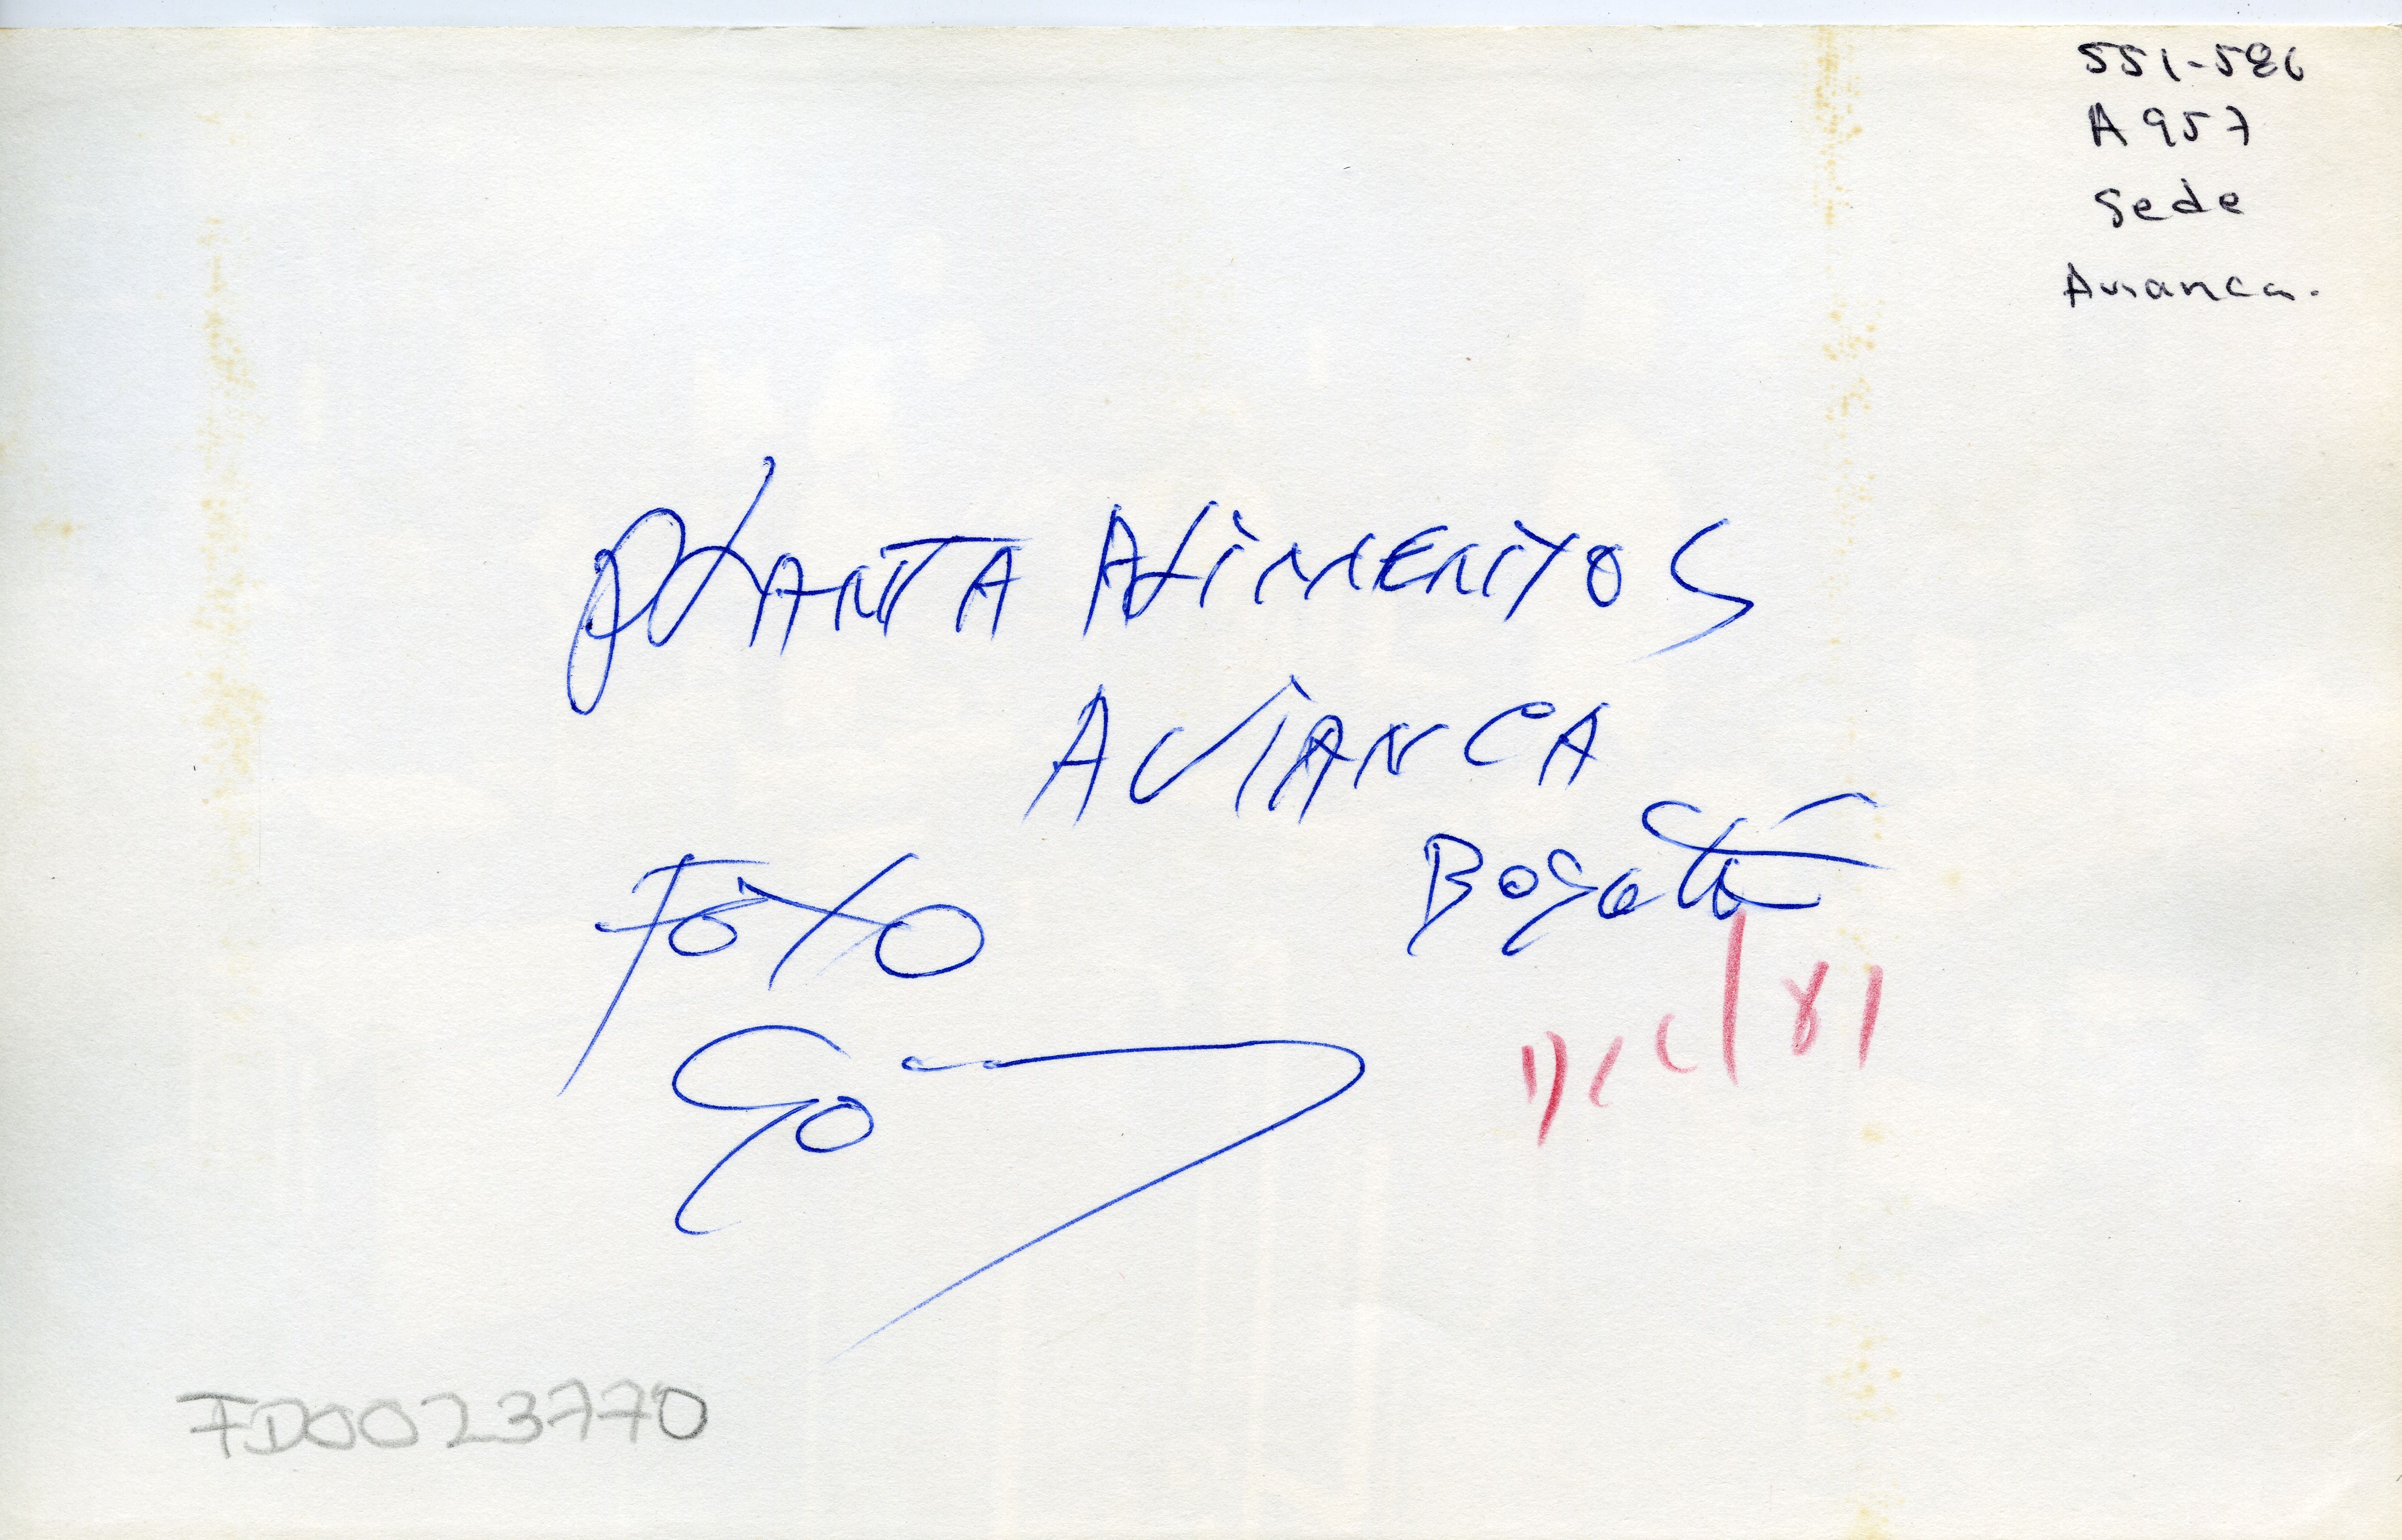 551-586
A957
Sede
Avianca.
PLANTA ALIMENTOS
AVIANCA
Bogotá
FOTO
Dic/81
FD0023770